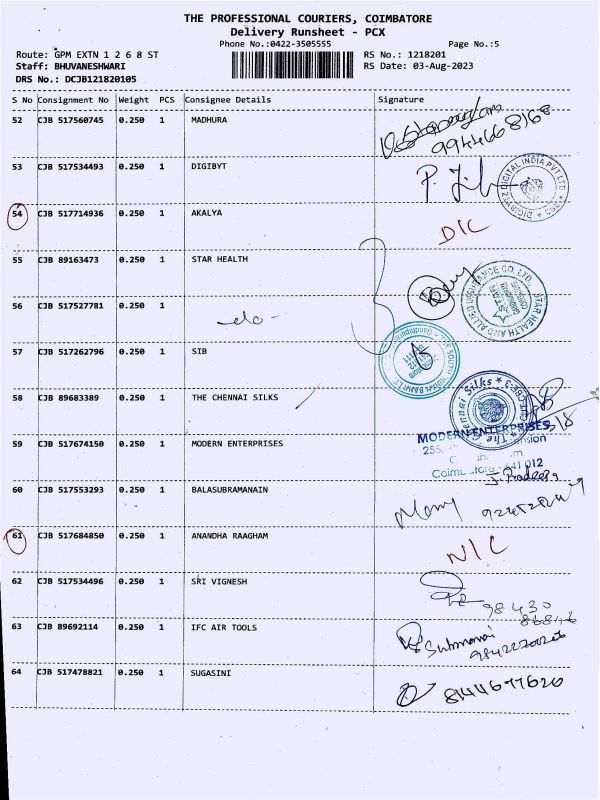 THE PROFESSIONAL COURIERS, COIMBATORE
Delivery Runsheet - PCX
Phone No.:0422-3505555
Page No.:5
Route: GPM EXTN 1 2 6 8 ST
RS No.: 1218201
Staff: BHUVANESHWARI
RS Date: 03-Aug-2023
DRS No.: DCJB121820105
S No Consignment No Weight PCS Consignee Details Signature
52 CJB 517560745 0.250 1 MADHURA
9944668168
53 CJB 517534493 0.250 1 DIGIBYT
DIGIBYTZ DIGITAL INDIA PVT LTD
54 CJB 517714936 0.250 1 AKALYA
D/C
55 CJB 89163473 0.250 1 STAR HEALTH
STAR HEALTH AND ALLIED INSURANCE CO. LTD.
56 CJB 517527781 0.250 1
-do-
57 CJB 517262796 0.250 1 SIB
58 CJB 89683389 0.250 1 THE CHENNAI SILKS
The Chennai Silks
59 CJB 517674150 0.250 1 MODERN ENTERPRISES
MODERN ENTERPRISES
255,
Coimbatore - 641 012
60 CJB 517553293 0.250 1 BALASUBRAMANAIN
J. Pradeep
61 CJB 517684850 0.250 1 ANANDHA RAAGHAM
N/C
62 CJB 517534496 0.250 1 SRI VIGNESH
98430
63 CJB 89692114 0.250 1 IFC AIR TOOLS
64 CJB 517478821 0.250 1 SUGASINI
8144677620